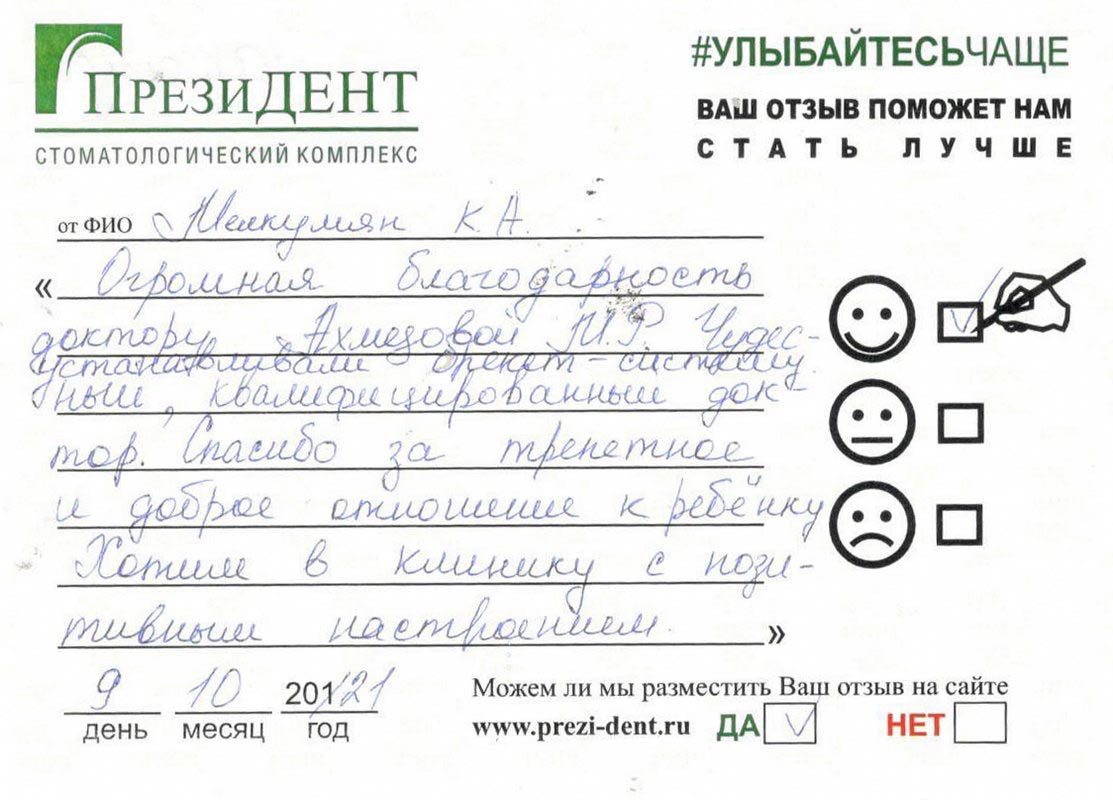 ПРЕЗИДЕНТ
СТОМАТОЛОГИЧЕСКИЙ КОМПЛЕКС
#УЛЫБАЙТЕСЬЧАЩЕ
ВАШ ОТЗЫВ ПОМОЖЕТ НАМ
СТАТЬ ЛУЧШЕ
от ФИО Мелкумян К.А.
« Огромная благодарность
доктору Ахмедовой М.Р. Чудес-
устанавливали брекет-систему.
ный, квалифицированный док-
тор. Спасибо за трепетное
и доброе отношение к ребёнку
Хотим в клинику с пози-
тивным настроением. »
9 10 201/21
день месяц год
Можем ли мы разместить Ваш отзыв на сайте
www.prezi-dent.ru ДА НЕТ